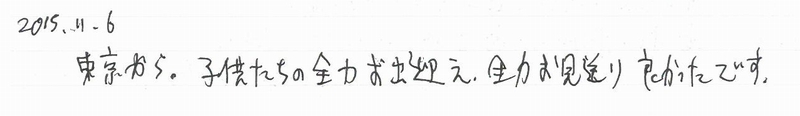 2015.11.6
東京から。子供たちの全力お出迎え、全力お見送り良かったです。